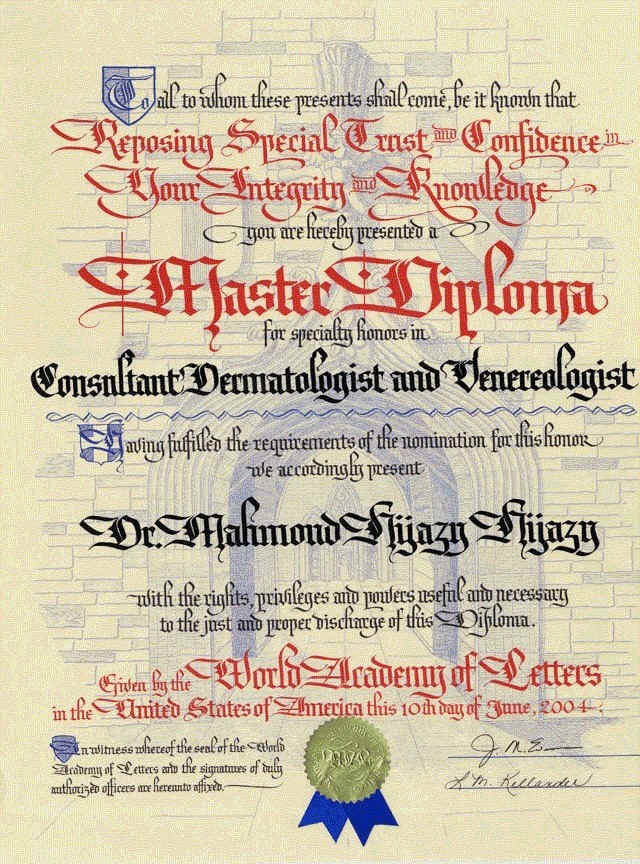 To all to whom these presents shall come, be it known that
Reposing Special Trust and Confidence in
Your Integrity and Knowledge
you are hereby presented a
Master Diploma
for specialty honors in
Consultant Dermatologist and Venereologist
Having fulfilled the requirements of the nomination for this honor
we accordingly present
Dr. Mahmond Hijazy Hijazy
with the rights, privileges and powers useful and necessary
to the just and proper discharge of this Diploma.
Given by the World Academy of Letters
in the United States of America this 10th day of June, 2004.
In witness whereof the seal of the World
Academy of Letters and the signatures of duly
authorized officers are hereunto affixed.
J. M. E
L. M. Killander